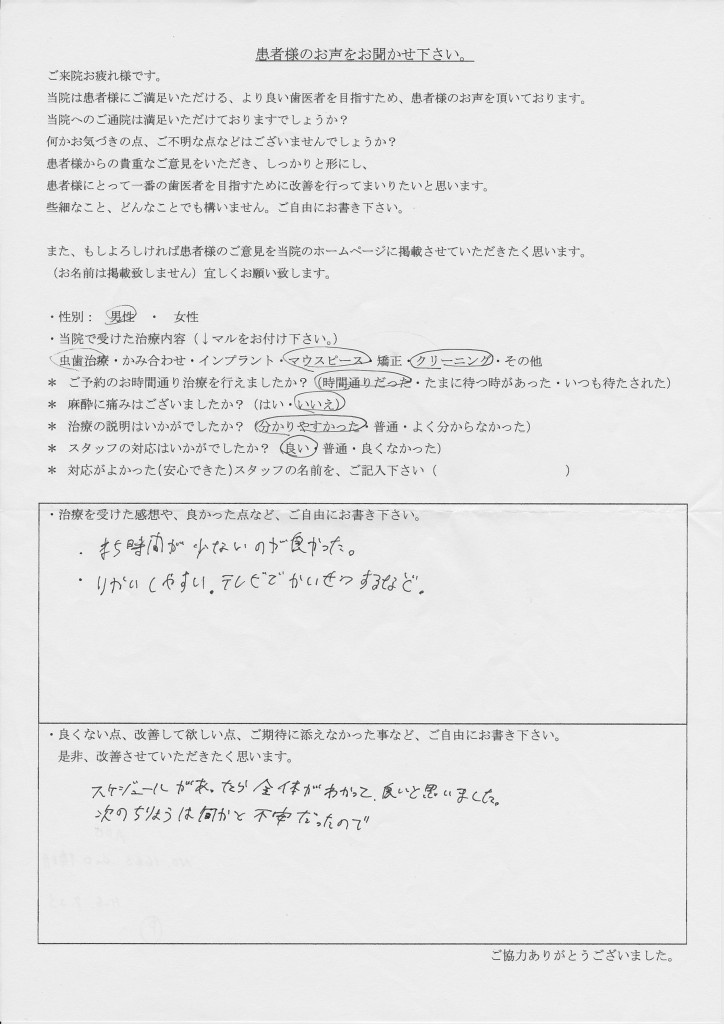 患者様のお声をお聞かせ下さい。
ご来院お疲れ様です。
当院は患者様にご満足いただける、より良い歯医者を目指すため、患者様のお声を頂いております。
当院へのご通院は満足いただけておりますでしょうか？
何かお気づきの点、ご不明な点などはございませんでしょうか？
患者様からの貴重なご意見をいただき、しっかりと形にし、
患者様にとって一番の歯医者を目指すために改善を行ってまいりたいと思います。
些細なこと、どんなことでも構いません。ご自由にお書き下さい。
また、もしよろしければ患者様のご意見を当院のホームページに掲載させていただきたく思います。
（お名前は掲載致しません）宜しくお願い致します。
・性別： 男性 ・ 女性
・当院で受けた治療内容（↓マルをお付け下さい。）
虫歯治療・かみ合わせ・インプラント・マウスピース・矯正・クリーニング・その他
＊ ご予約のお時間通り治療を行えましたか？（時間通りだった・たまに待つ時があった・いつも待たされた）
＊ 麻酔に痛みはございましたか？（はい・いいえ）
＊ 治療の説明はいかがでしたか？（分かりやすかった・普通・よく分からなかった）
＊ スタッフの対応はいかがでしたか？（良い・普通・良くなかった）
＊ 対応がよかった（安心できた）スタッフの名前を、ご記入下さい（ ）
・治療を受けた感想や、良かった点など、ご自由にお書き下さい。
・待ち時間が少ないのが良かった。
・りかいしやすい。テレビでかいせつするなど。
・良くない点、改善して欲しい点、ご期待に添えなかった事など、ご自由にお書き下さい。
是非、改善させていただきたく思います。
スケジュールがあったら全体がわかって、良いと思いました。
次のちりょうは何かと不安だったので
ご協力ありがとうございました。